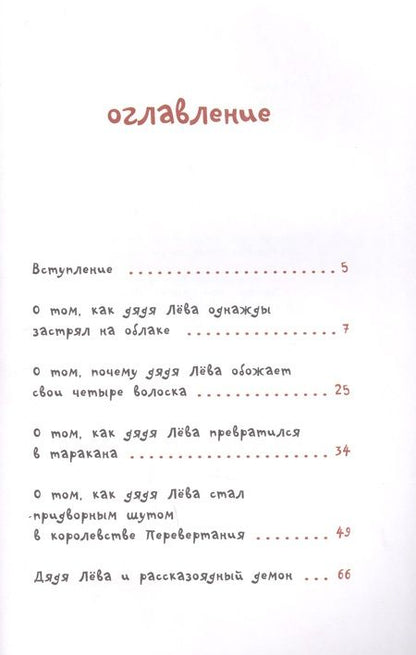 оглавление
Вступление ....................... 5
О том, как дядя Лёва однажды
застрял на облаке ................ 7
О том, почему дядя Лёва обожает
свои четыре волоска .............. 25
О том, как дядя Лёва превратился
в таракана ....................... 34
О том, как дядя Лёва стал
придворным шутом
в королевстве Перевертания ........ 49
Дядя Лёва и рассказоядный демон ... 66